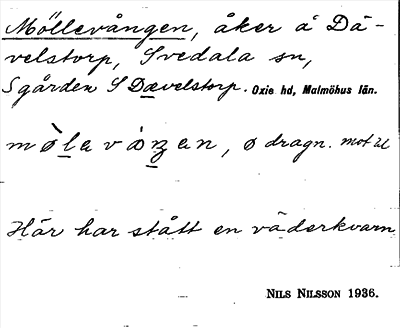 Möllevången, åker å Dä-
velstorp, Svedala sn,
S gården S Dävelstorp. Oxie hd, Malmöhus län.
dragn. mot
Här har stått en väderkvarn
NILS NILSSON 1936.